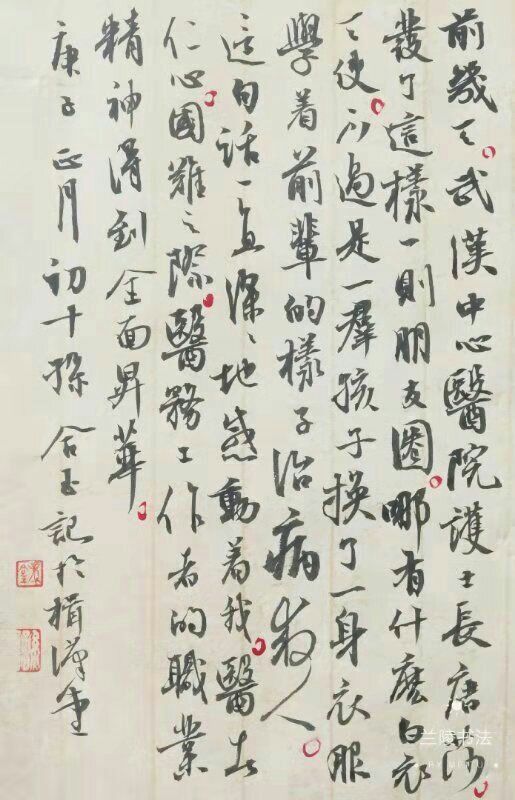 前幾天。武漢中心醫院護士長唐沙。
發了這樣一則朋友圈。哪有什麽白衣
天使。不過是一群孩子換了一身衣服
學着前輩的樣子治病救人。
這句話一直深深地感動着我。醫者
仁心。國難之際。醫務工作者的職業
精神得到全面昇華。
庚子正月初十孫合玉記於楫漢堂
兰陵书法